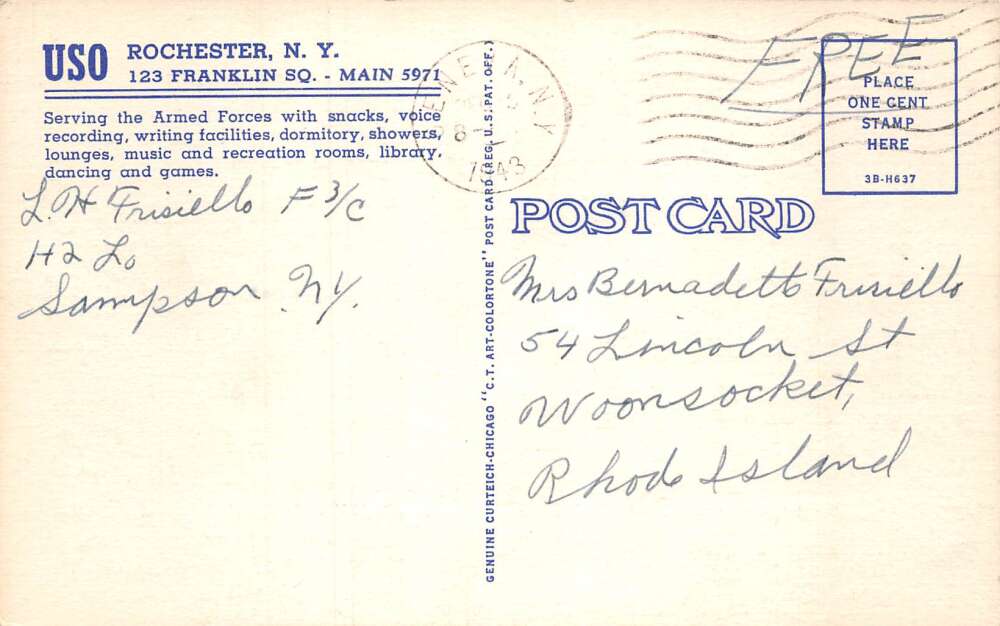 USO ROCHESTER, N. Y.
123 FRANKLIN SQ. - MAIN 5971
Serving the Armed Forces with snacks, voice
recording, writing facilities, dormitory, showers,
lounges, music and recreation rooms, library,
dancing and games.
L. H Frisiello F 3/C
H2 Lo
Sampson N.Y.
GENUINE CURTEICH-CHICAGO "C.T. ART-COLORTONE" POST CARD (REG. U.S. PAT. OFF.)
N.Y.
1943
FREE
PLACE
ONE CENT
STAMP
HERE
3B-H637
POST CARD
Mrs Bernadette Frisiello
54 Lincoln St
Woonsocket,
Rhode Island